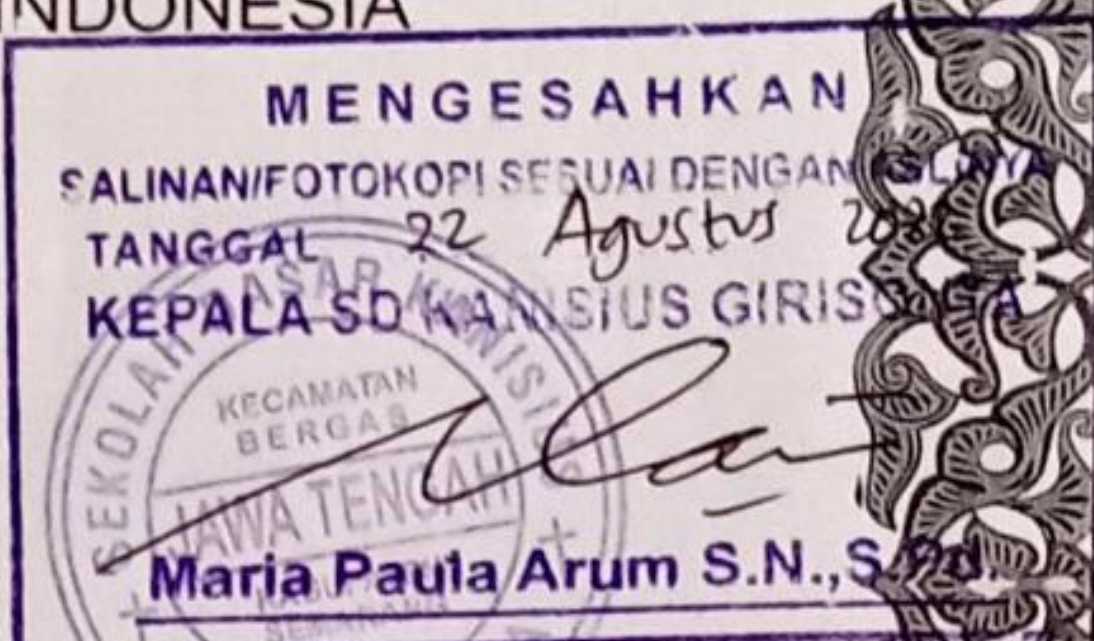 INDONESIA
MENGESAHKAN
SALINAN/FOTOKOPI SESUAI DENGAN ASLINYA
TANGGAL 22 Agustus
KEPALA SD KANISIUS GIRISONTA
SEKOLAH DASAR KANISIUS
KECAMATAN
BERGAS
JAWA TENGAH
KABUPATEN
SEMARANG
Maria Paula Arum S.N.,S.Pd.